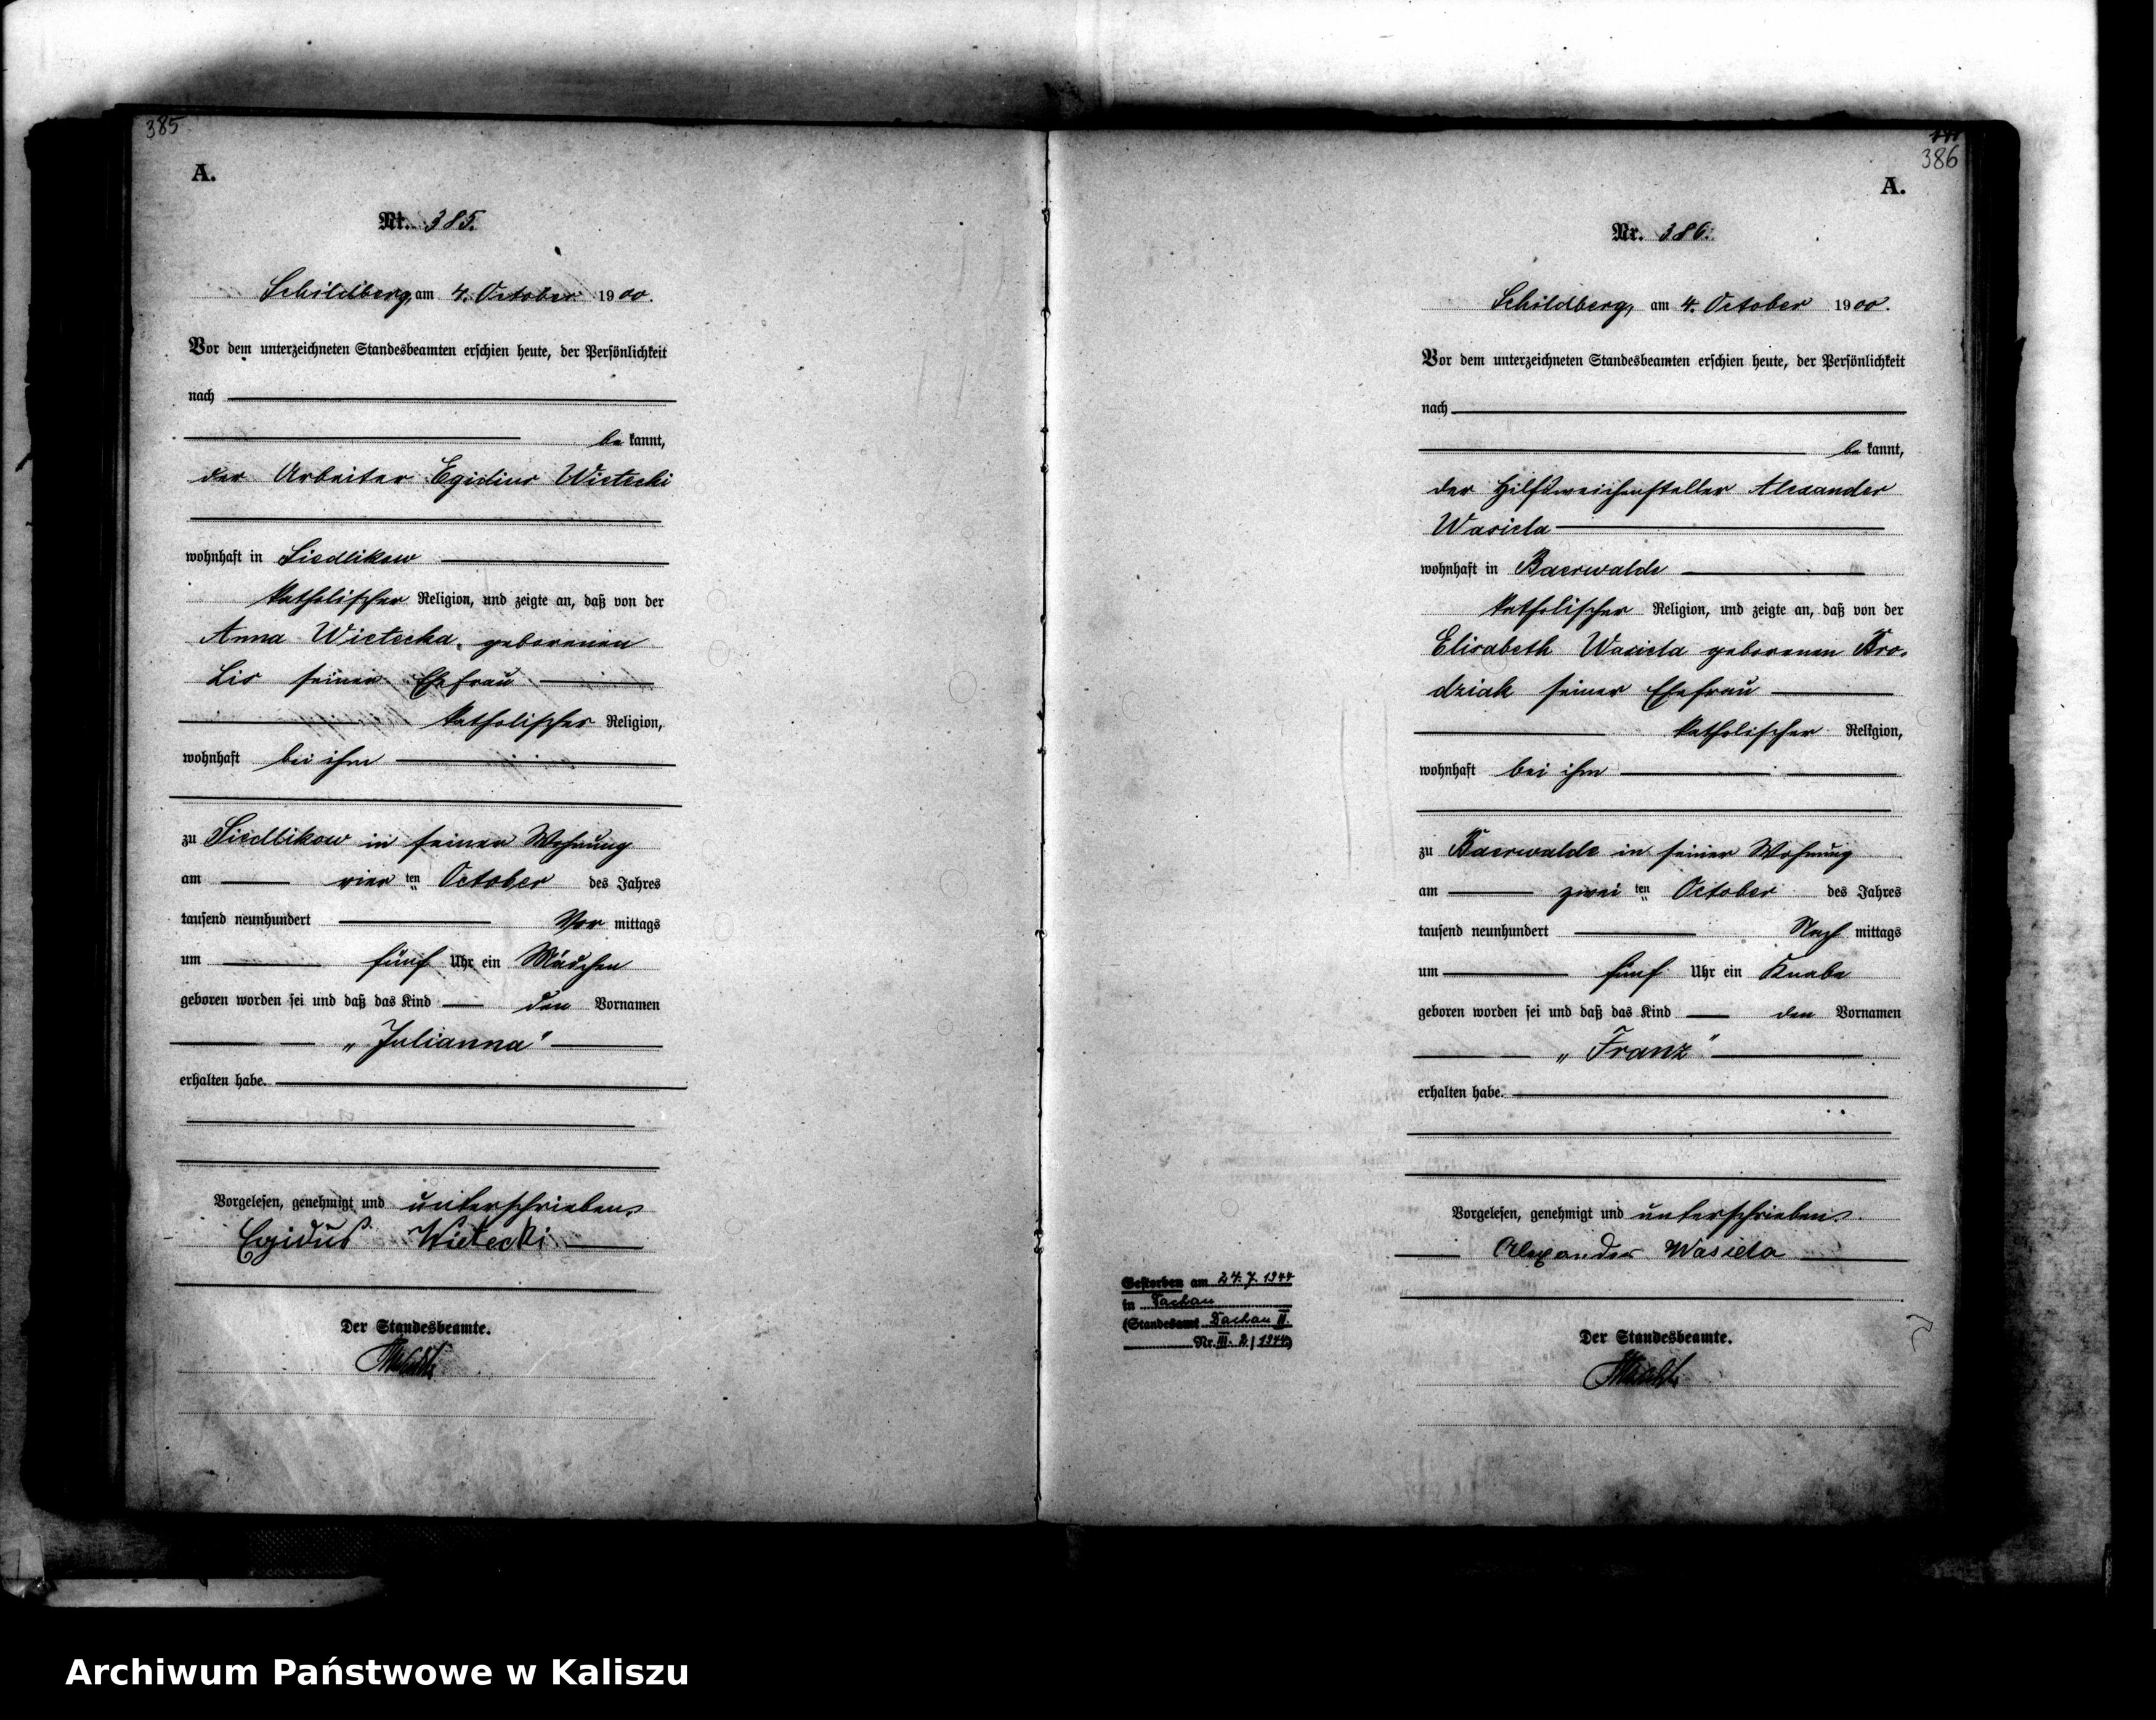 385
A.
Nr. 385.
Schildberg, am 4. October 1900.
Vor dem unterzeichneten Standesbeamten erschien heute, der Persönlichkeit
nach
be kannt,
der Arbeiter Egidius Wietecki
wohnhaft in Siedlikow
katholischer Religion, und zeigte an, daß von der
Anna Wietecka, geborenen
Lis seiner Ehefrau
katholischer Religion,
wohnhaft bei ihm
zu Siedlikow in seiner Wohnung
am vier ten October des Jahres
tausend neunhundert Vor mittags
um fünf Uhr ein Mädchen
geboren worden sei und daß das Kind den Vornamen
„Julianna"
erhalten habe.
Vorgelesen, genehmigt und unterschrieben.
Egidus Wietecki
Der Standesbeamte.
386
A.
Nr. 386.
Schildberg, am 4. October 1900.
Vor dem unterzeichneten Standesbeamten erschien heute, der Persönlichkeit
nach
be kannt,
der Hilfsweichensteller Alexander
Wasiela
wohnhaft in Baerwalde
katholischer Religion, und zeigte an, daß von der
Elisabeth Wasiela geborenen Bro-
dziak seiner Ehefrau
katholischer Religion,
wohnhaft bei ihm
zu Baerwalde in seiner Wohnung
am zwei ten October des Jahres
tausend neunhundert Nach mittags
um fünf Uhr ein Knabe
geboren worden sei und daß das Kind den Vornamen
„Franz"
erhalten habe.
Vorgelesen, genehmigt und unterschrieben.
Alexander Wasiela
Der Standesbeamte.
Gestorben am 24. 7. 1944
in Dachau
(Standesamt Dachau II.
Nr. III. 2/1944)
Archiwum Państwowe w Kaliszu